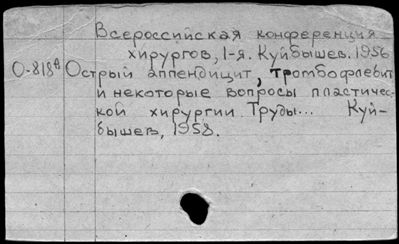 Всероссийская конференция
хирургов, 1-я. Куйбышев. 1956
О-818в Острый аппендицит, тромбофлебит
и некоторые вопросы пластичес-
кой хирургии. Труды... Куй-
бышев, 1958.